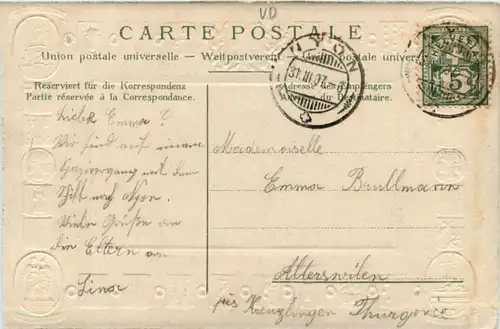 VD
CARTE POSTALE
Union postale universelle. – Weltpostverein postale universelle
NYON
31.III.07
5
Reserviert für die Korrespondenz
Partie réservée à la Correspondance.
Adresse des Empfängers
Adresse du Destinataire.
Liebe Emma!
Wir sind auf einem
Spaziergang mit dem
Schiff nach Nyon.
Viele Grüße an
die Eltern von
Lina
Mademoiselle
Emma Brullmann
Alterswilen
près Kreuzlingen Thurgovie